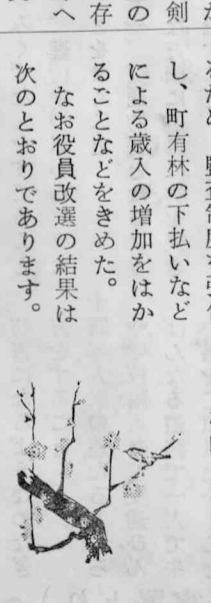 剣
の
存
へ
し、町有林の下払いなど
による歳入の増加をはか
ることなどをきめた。
なお役員改選の結果は
次のとおりであります。